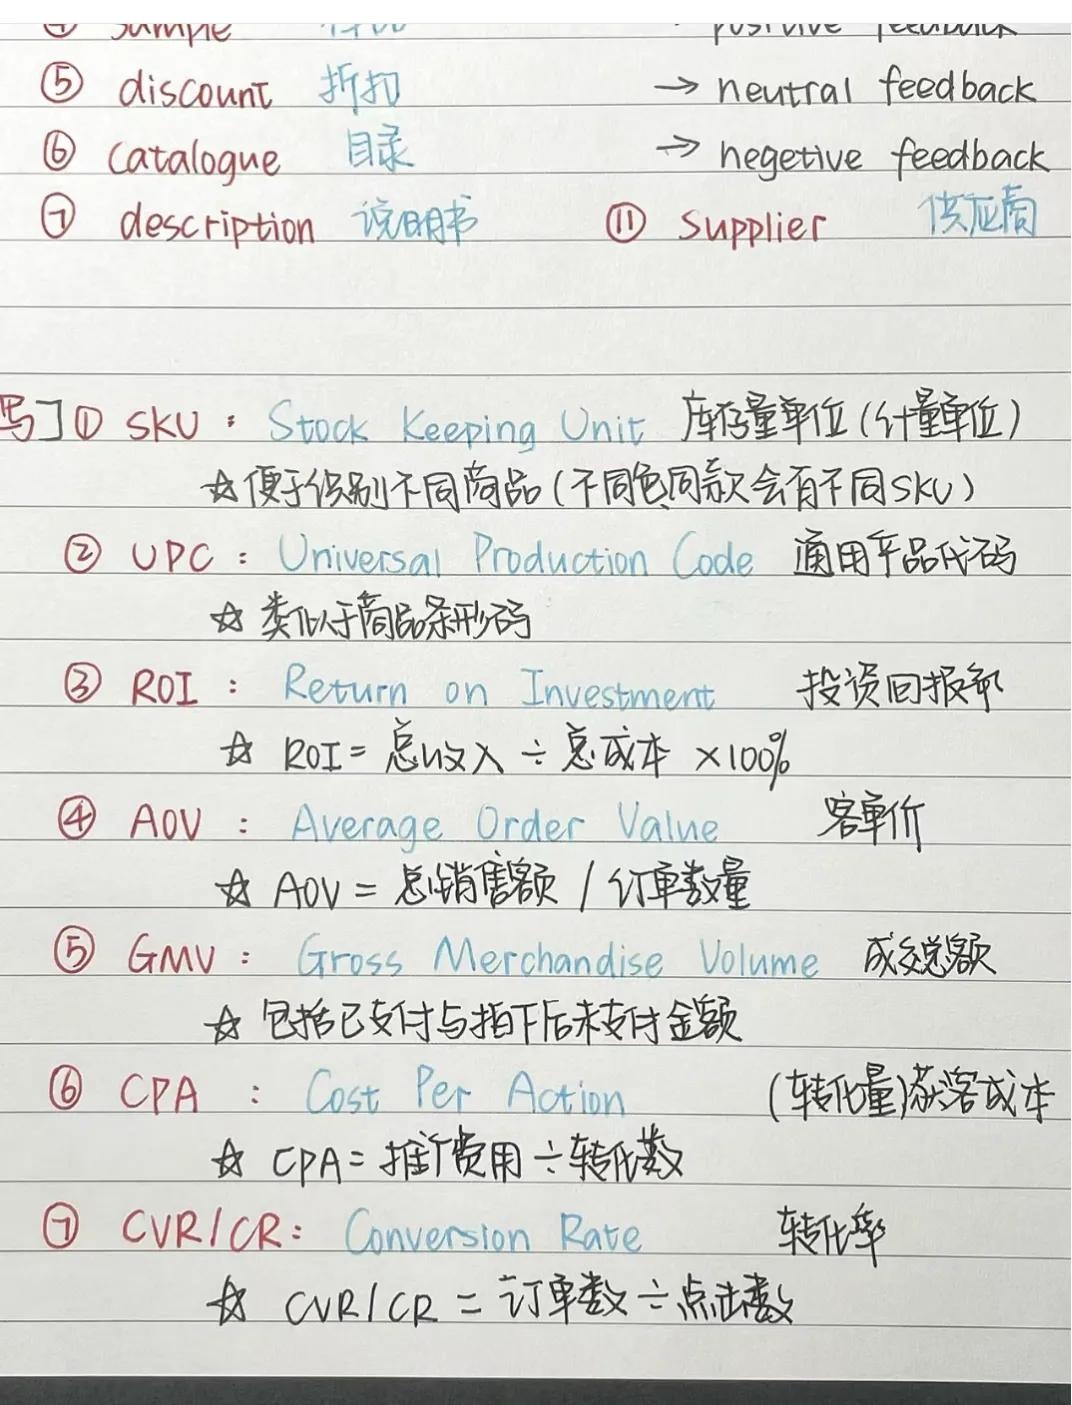 ④ sample 样品
→ positive feedback
⑤ discount 折扣
→ neutral feedback
⑥ catalogue 目录
→ negetive feedback
⑦ description 说明书
⑪ supplier 供应商
写] ① SKU : Stock Keeping Unit 库存量单位(计量单位)
☆ 便于识别不同商品(不同色同款会有不同SKU)
② UPC : Universal Production Code 通用产品代码
☆ 类似于商品条形码
③ ROI : Return on Investment 投资回报率
☆ ROI = 总收入 ÷ 总成本 ×100%
④ AOV : Average Order Value 客单价
☆ AOV = 总销售额 / 订单数量
⑤ GMV : Gross Merchandise Volume 成交总额
☆ 包括已支付与拍下后未支付金额
⑥ CPA : Cost Per Action (转化量)获客成本
☆ CPA = 推广费用 ÷ 转化数
⑦ CVR/CR: Conversion Rate 转化率
☆ CVR/CR = 订单数 ÷ 点击数